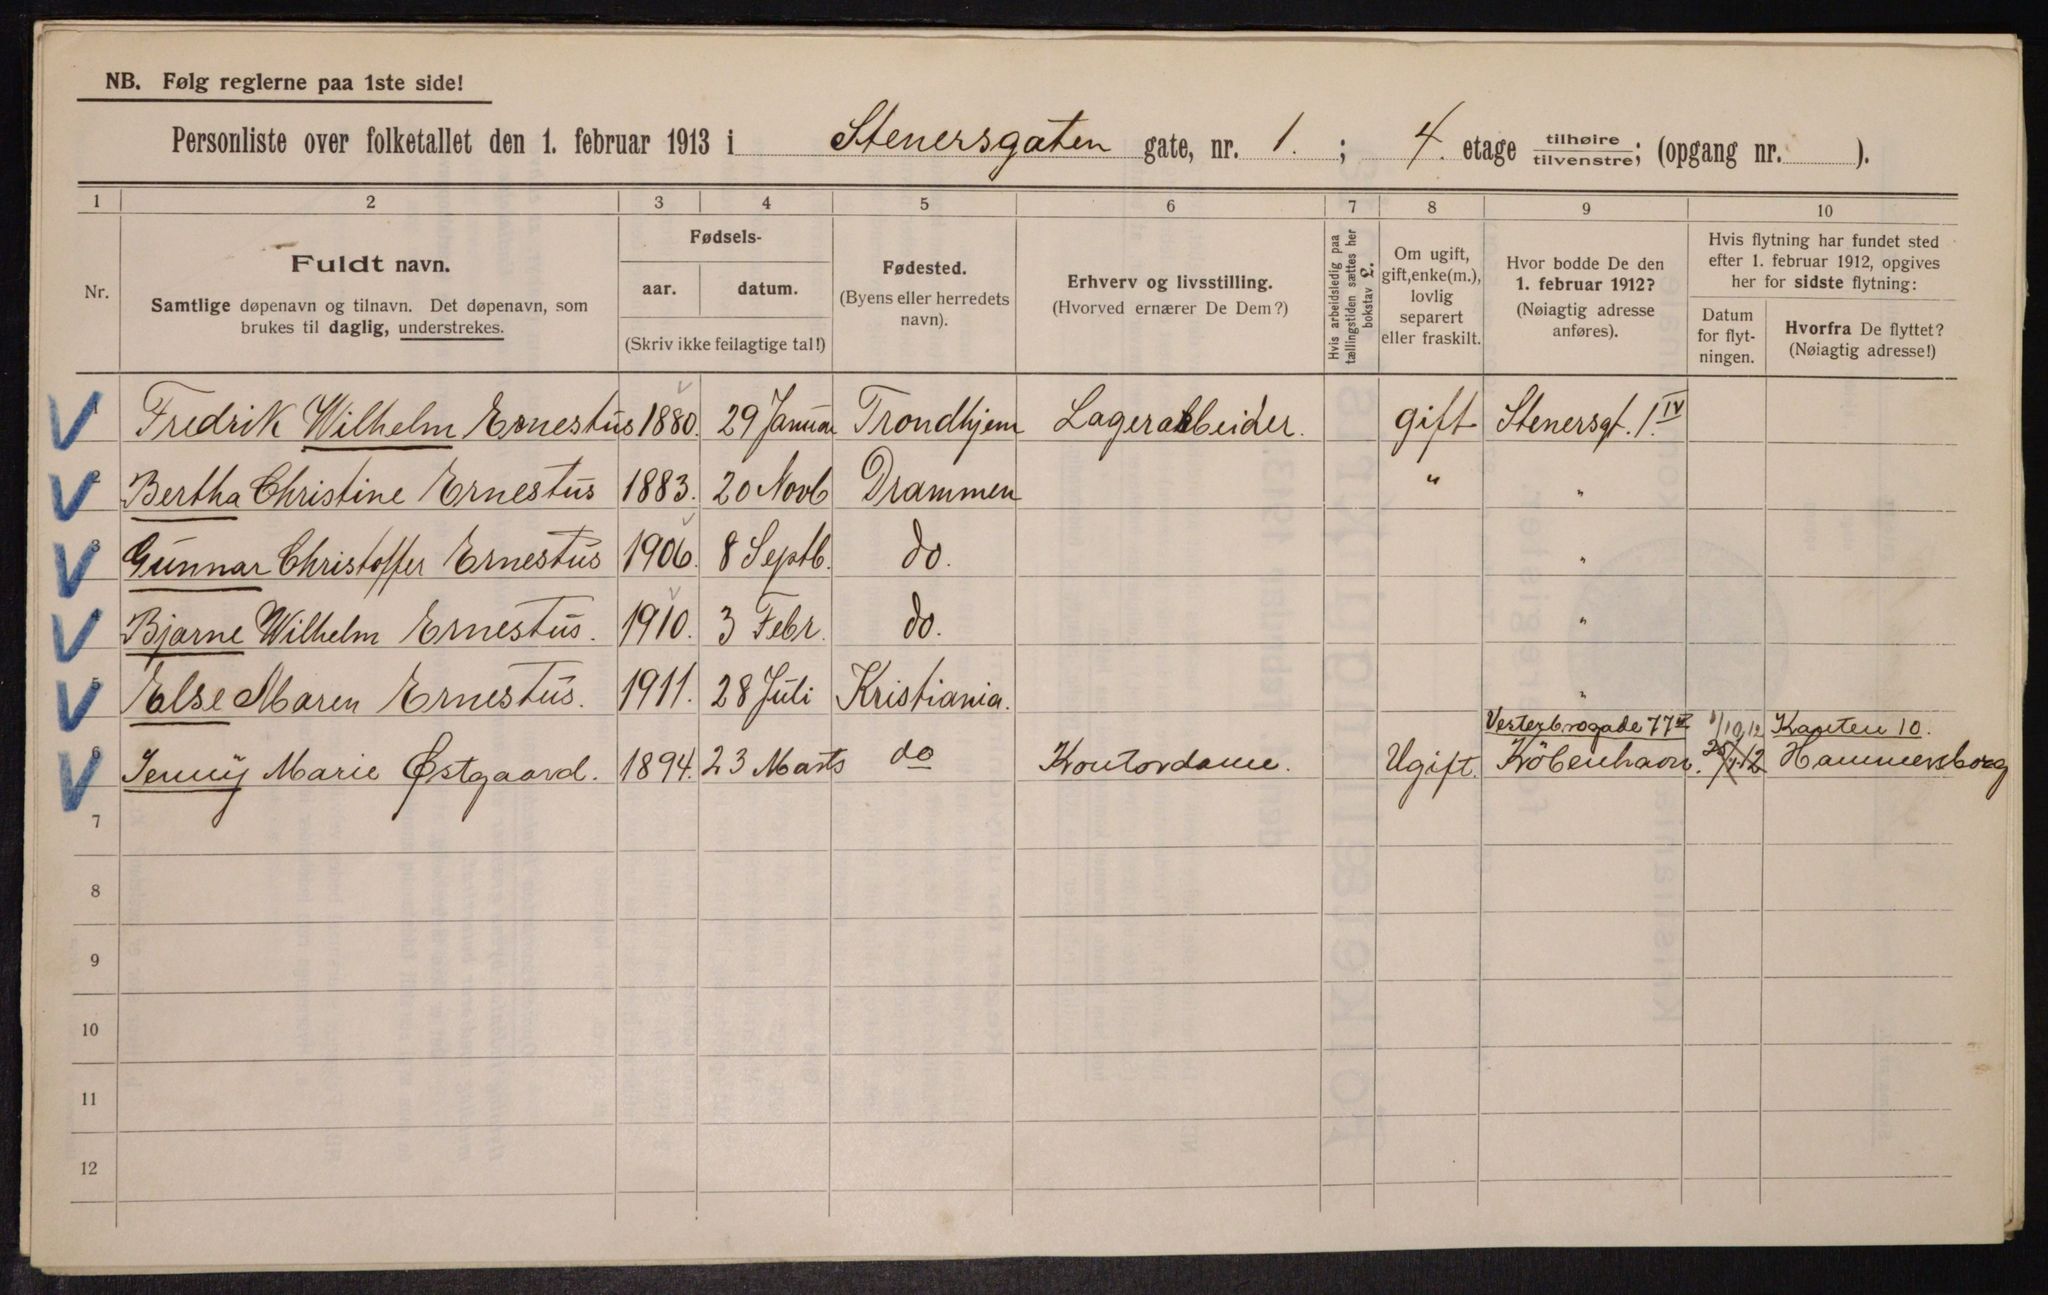 NB. Følg reglerne paa 1ste side!
Personliste over folketallet den 1. februar 1913 i Stenersgaten gate, nr. 1. ; 4. etage tilhøire/tilvenstre; (opgang nr. ).
1 2 3 4 5 6 7 8 9 10
Nr.
Fuldt navn.
Samtlige døpenavn og tilnavn. Det døpenavn, som
brukes til daglig, understrekes.
Fødsels-
aar. datum.
(Skriv ikke feilagtige tal!)
Fødested.
(Byens eller herredets
navn).
Erhverv og livsstilling.
(Hvorved ernærer De Dem?)
Hvis arbeidsledig paa
tællingstiden sættes her
bokstav L.
Om ugift,
gift, enke(m.),
lovlig
separert
eller fraskilt.
Hvor bodde De den
1. februar 1912?
(Nøiagtig adresse
anføres).
Hvis flytning har fundet sted
efter 1. februar 1912, opgives
her for sidste flytning:
Datum
for flyt-
ningen.
Hvorfra De flyttet?
(Nøiagtig adresse!)
1 Fredrik Wilhelm Ernestus 1880. 29 Januar Trondhjem Lagerarbeider. gift Stenersgt. 1. IV
2 Bertha Christine Ernestus 1883. 20 Novb Drammen " "
3 Gunnar Christoffer Ernestus 1906. 8 Septb. do. "
4 Bjarne Wilhelm Ernestus. 1910. 3 Febr. do. "
5 Else Maren Ernestus. 1911. 28 Juli Kristiania. "
Vesterbrogade 77 /10 12 Kanten 10.
6 Jenny Marie Østgaard. 1894. 23 Marts do Kontordame. Ugift. Köbenhavn. Hammersborg
7
8
9
10
11
12